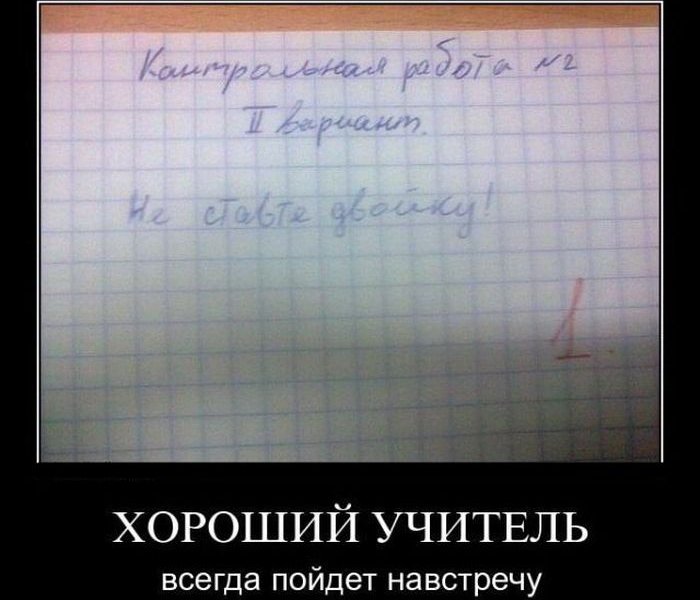 Контрольная работа №2
II вариант.
Не ставте двойку!
1
ХОРОШИЙ УЧИТЕЛЬ
всегда пойдет навстречу